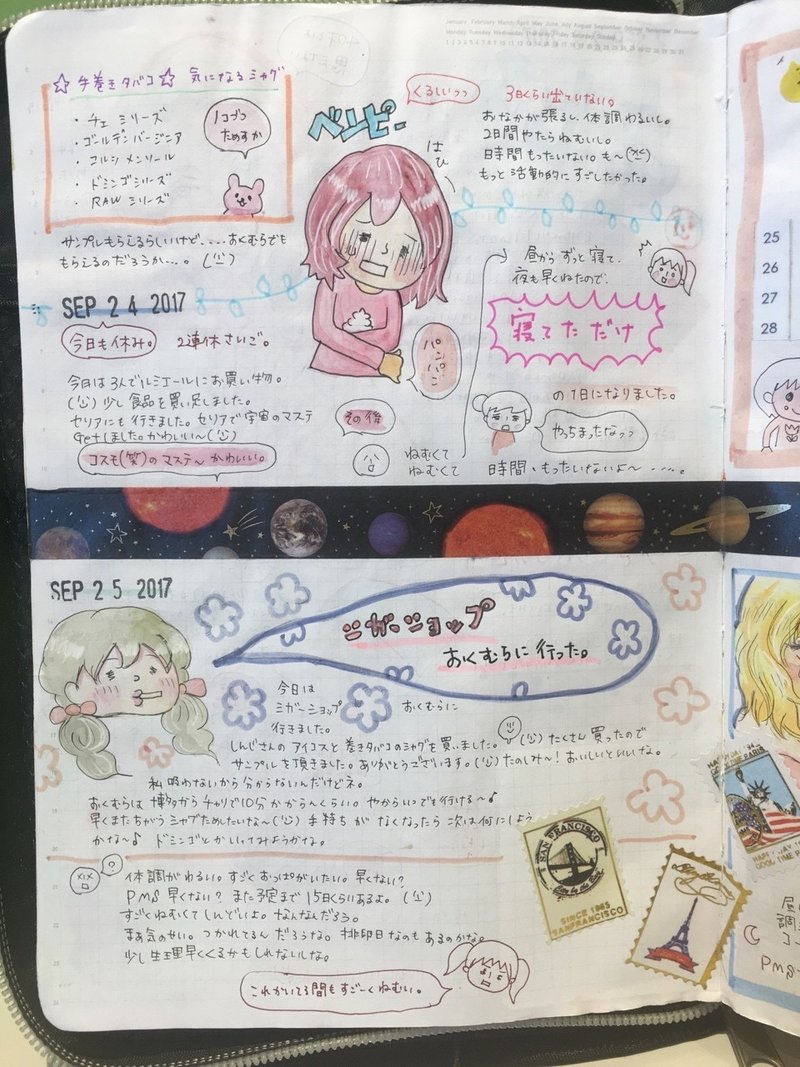 January February March April May June July August September October November December
Monday Tuesday Wednesday Thursday Friday Saturday Sunday
1 2 3 4 5 6 7 8 9 10 11 12 13 14 15 16 17 18 19 20 21 22 23 24 25 26 27 28 29 30 31
☆ 手巻きタバコ☆ 気になるシャグ
・チェ シリーズ
・ゴールデンバージニア
・コルツ メンソール
・ドミンゴシリーズ
・RAW シリーズ
1コづつ
ためすか
サンプルもらえるらしいけど、...おくむらでも
もらえるのだろうか...。
ベンピー
くるしいっっ
はひぃ
3日くらい出ていない。
おなかが張るし、体調わるいし。
2日間やたらねむいし。
時間もったいない。も〜
もっと活動的にすごしたかった。
SEP 24 2017
今日も休み。 2連休さいご。
今日は3人でルミエールにお買い物。
少し食品を買い足しました。
セリアにも行きました。セリアで宇宙のマステ
getしました。かわいい〜
コスモ(笑)のマステ〜かわいい。
パンパン
その後
ねむくて
ねむくて
昼からずっと寝て、
夜も早くねたので、
寝てただけ
の1日になりました。
やっちまったなっっ
時間、もったいないよ〜....。
25
26
27
28
SEP 25 2017
シガーショップ
おくむらに行った。
今日は
シガーショップ おくむらに
行きました。
しんじさんのアイコスと巻きタバコのシャグを買いました。たくさん買ったので
サンプルを頂きました。ありがとうございます。たのしみ〜!おいしいといいな。
私吸わないから分からないんだけどネ。
おくむらは博多からチャリで10分かからんくらい。やからいつでも行ける〜♪
早くまたちがうシャグためしたいな〜 手持ちがなくなったら次は何にしよう
かな〜♪ ドミンゴとかいってみようかな。
?
体調がわるい。すごくおっぱがいたい。早くない?
PMS早くない?まだ予定まで15日くらいあるよ。
すごくねむくてしんどいよ。なんなんだろう。
まぁ気のせい。つかれてるんだろうな。排卵日なのもあるのかな。
少し生理早くくるかもしれないしな。
これかいてる間もすごーくねむい。
SAN FRANCISCO
SINCE 1965
SANFRANCISCO
GOOD TIME PARIS
PMS